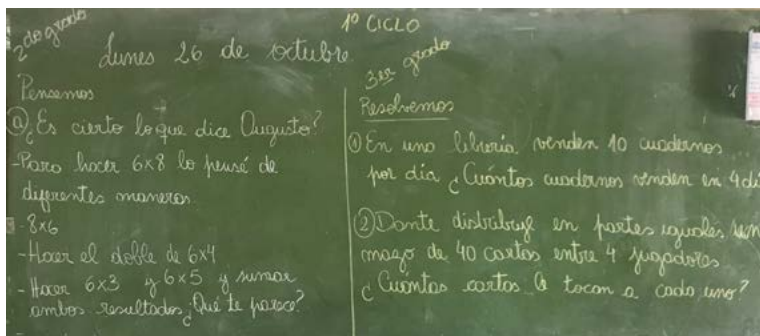 1º CICLO
2do grado
Lunes 26 de octubre
Pensemos
ⓐ ¿Es cierto lo que dice Augusto?
-Para hacer 6x8 lo pensé de
diferentes maneras.
-8x6
-Hacer el doble de 6x4
-Hacer 6x3 y 6x5 y sumar
ambos resultados ¿Qué te parece?
3er grado
Resolvemos
① En una librería venden 10 cuadernos
por día ¿Cuántos cuadernos venden en 4 dí
② Dante distribuye en partes iguales
mazo de 40 cartas entre 4 jugadores
¿Cuántas cartas le tocan a cada uno?